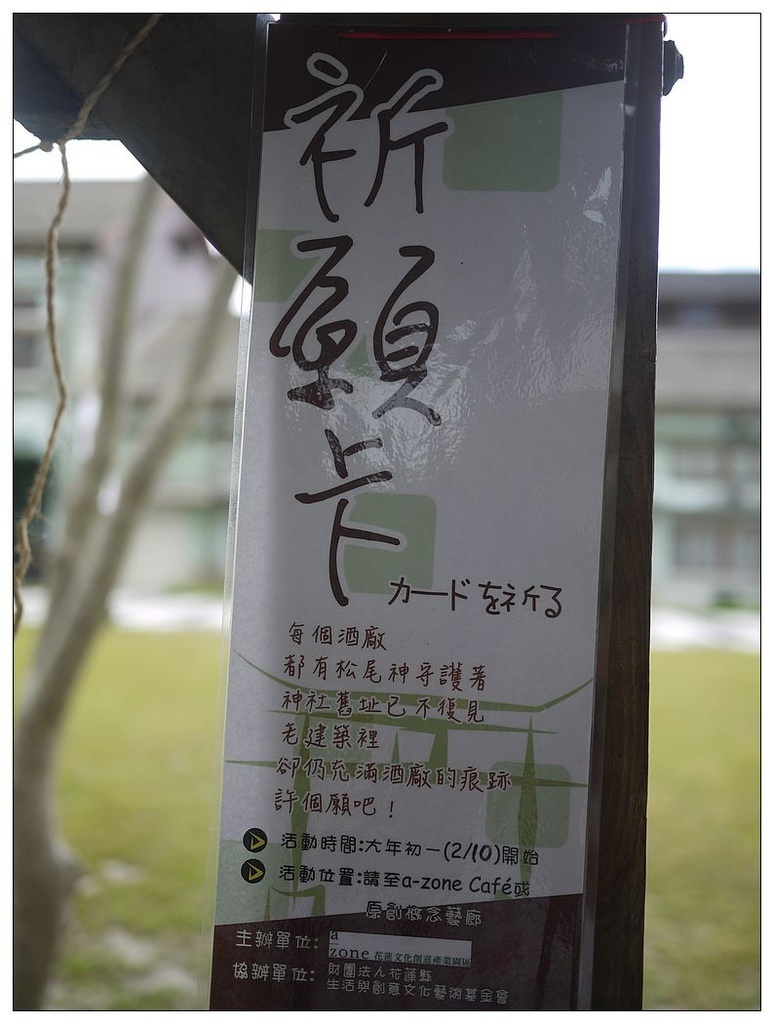 祈願卡
カードを祈る
每個酒廠
都有松尾神守護著
神社舊址已不復見
老建築裡
卻仍充滿酒廠的痕跡
許個願吧！
活動時間:大年初一(2/10)開始
活動位置:請至a-zone Café或
原創概念藝廊
主辦單位:
a
zone 花蓮文化創意產業園區
協辦單位:
財團法人花蓮縣
生活與創意文化藝術基金會